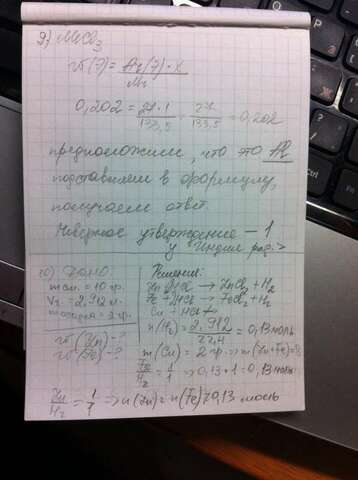 9) MeCl₃
W(Э) = Ar(Э)·x / Mr
0,202 = 27·1 / 133,5 = 27 / 133,5 = 0,202
предположим, что это Al
подставляем в формулу,
получаем ответ.
Неверное утверждение – 1
у Индия
10) Дано:
m см. = 10 гр.
V₂ = 2,912 л.
W(Zn) - ?
W(Fe) - ?
Решение:
Zn + 2HCl → ZnCl₂ + H₂
Fe + 2HCl → FeCl₂ + H₂
Cu + HCl ↛
n(H₂) = 2,912 / 22,4 = 0,13 моль
m(Cu) = 2 гр. => m(Zn+Fe)=8
Fe / H₂ = 1 / 1 => 0,13·1 = 0,13 моль
Zn / H₂ = 1 / 1 => n(Zn) = n(Fe) 0,13 моль